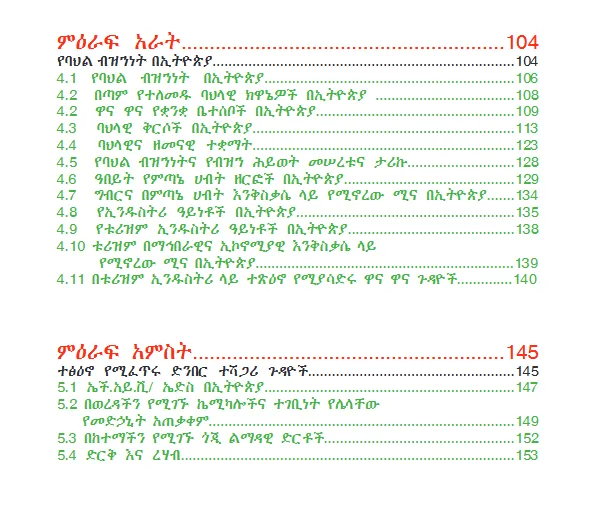 ምዕራፍ አራት.................................................104
የባህል ብዝኀነት በኢትዮጵያ.................................................104
4.1 የባህል ብዝኀነት በኢትዮጵያ.................................................106
4.2 በጣም የተለመዱ ባህላዊ ክዋኔዎች በኢትዮጵያ ............................108
4.2 ዋና ዋና የቋንቋ ቤተሰቦች በኢትዮጵያ.................................................109
4.3 ባህላዊ ቅርሶች በኢትዮጵያ.................................................113
4.4 ባህላዊና ዘመናዊ ተቋማት.................................................123
4.5 የባህል ብዝኀነትና የብዝኀ ሕይወት መሠረቱና ታሪኩ......................128
4.6 ዓበይት የምጣኔ ሀብት ዘርፎች በኢትዮጵያ...................................129
4.7 ግብርና በምጣኔ ሀብት እንቅስቃሴ ላይ የሚኖረው ሚና በኢትዮጵያ.......134
4.8 የኢንዱስትሪ ዓይነቶች በኢትዮጵያ.................................................135
4.9 የቱሪዝም ኢንዱስትሪ ዓይነቶች በኢትዮጵያ...................................138
4.10 ቱሪዝም በማኅበራዊና ኢኮኖሚያዊ እንቅስቃሴ ላይ
የሚኖረው ሚና በኢትዮጵያ.................................................139
4.11 በቱሪዝም ኢንዱስትሪ ላይ ተጽዕኖ የሚያሳድሩ ዋና ዋና ጉዳዮች..............140
ምዕራፍ አምስት.................................................145
ተፅዕኖ የሚፈጥሩ ድንበር ተሻጋሪ ጉዳዮች...................................145
5.1 ኤች.አይ.ቪ/ ኤድስ በኢትዮጵያ.................................................147
5.2 በወረዳችን የሚገኙ ኬሚካሎችና ተገቢነት የሌላቸው
የመድኃኒት አጠቃቀም.................................................149
5.3 በከተማችን የሚገኙ ጎጂ ልማዳዊ ድርቶች...................................152
5.4 ድርቅ እና ረሃብ.................................................153